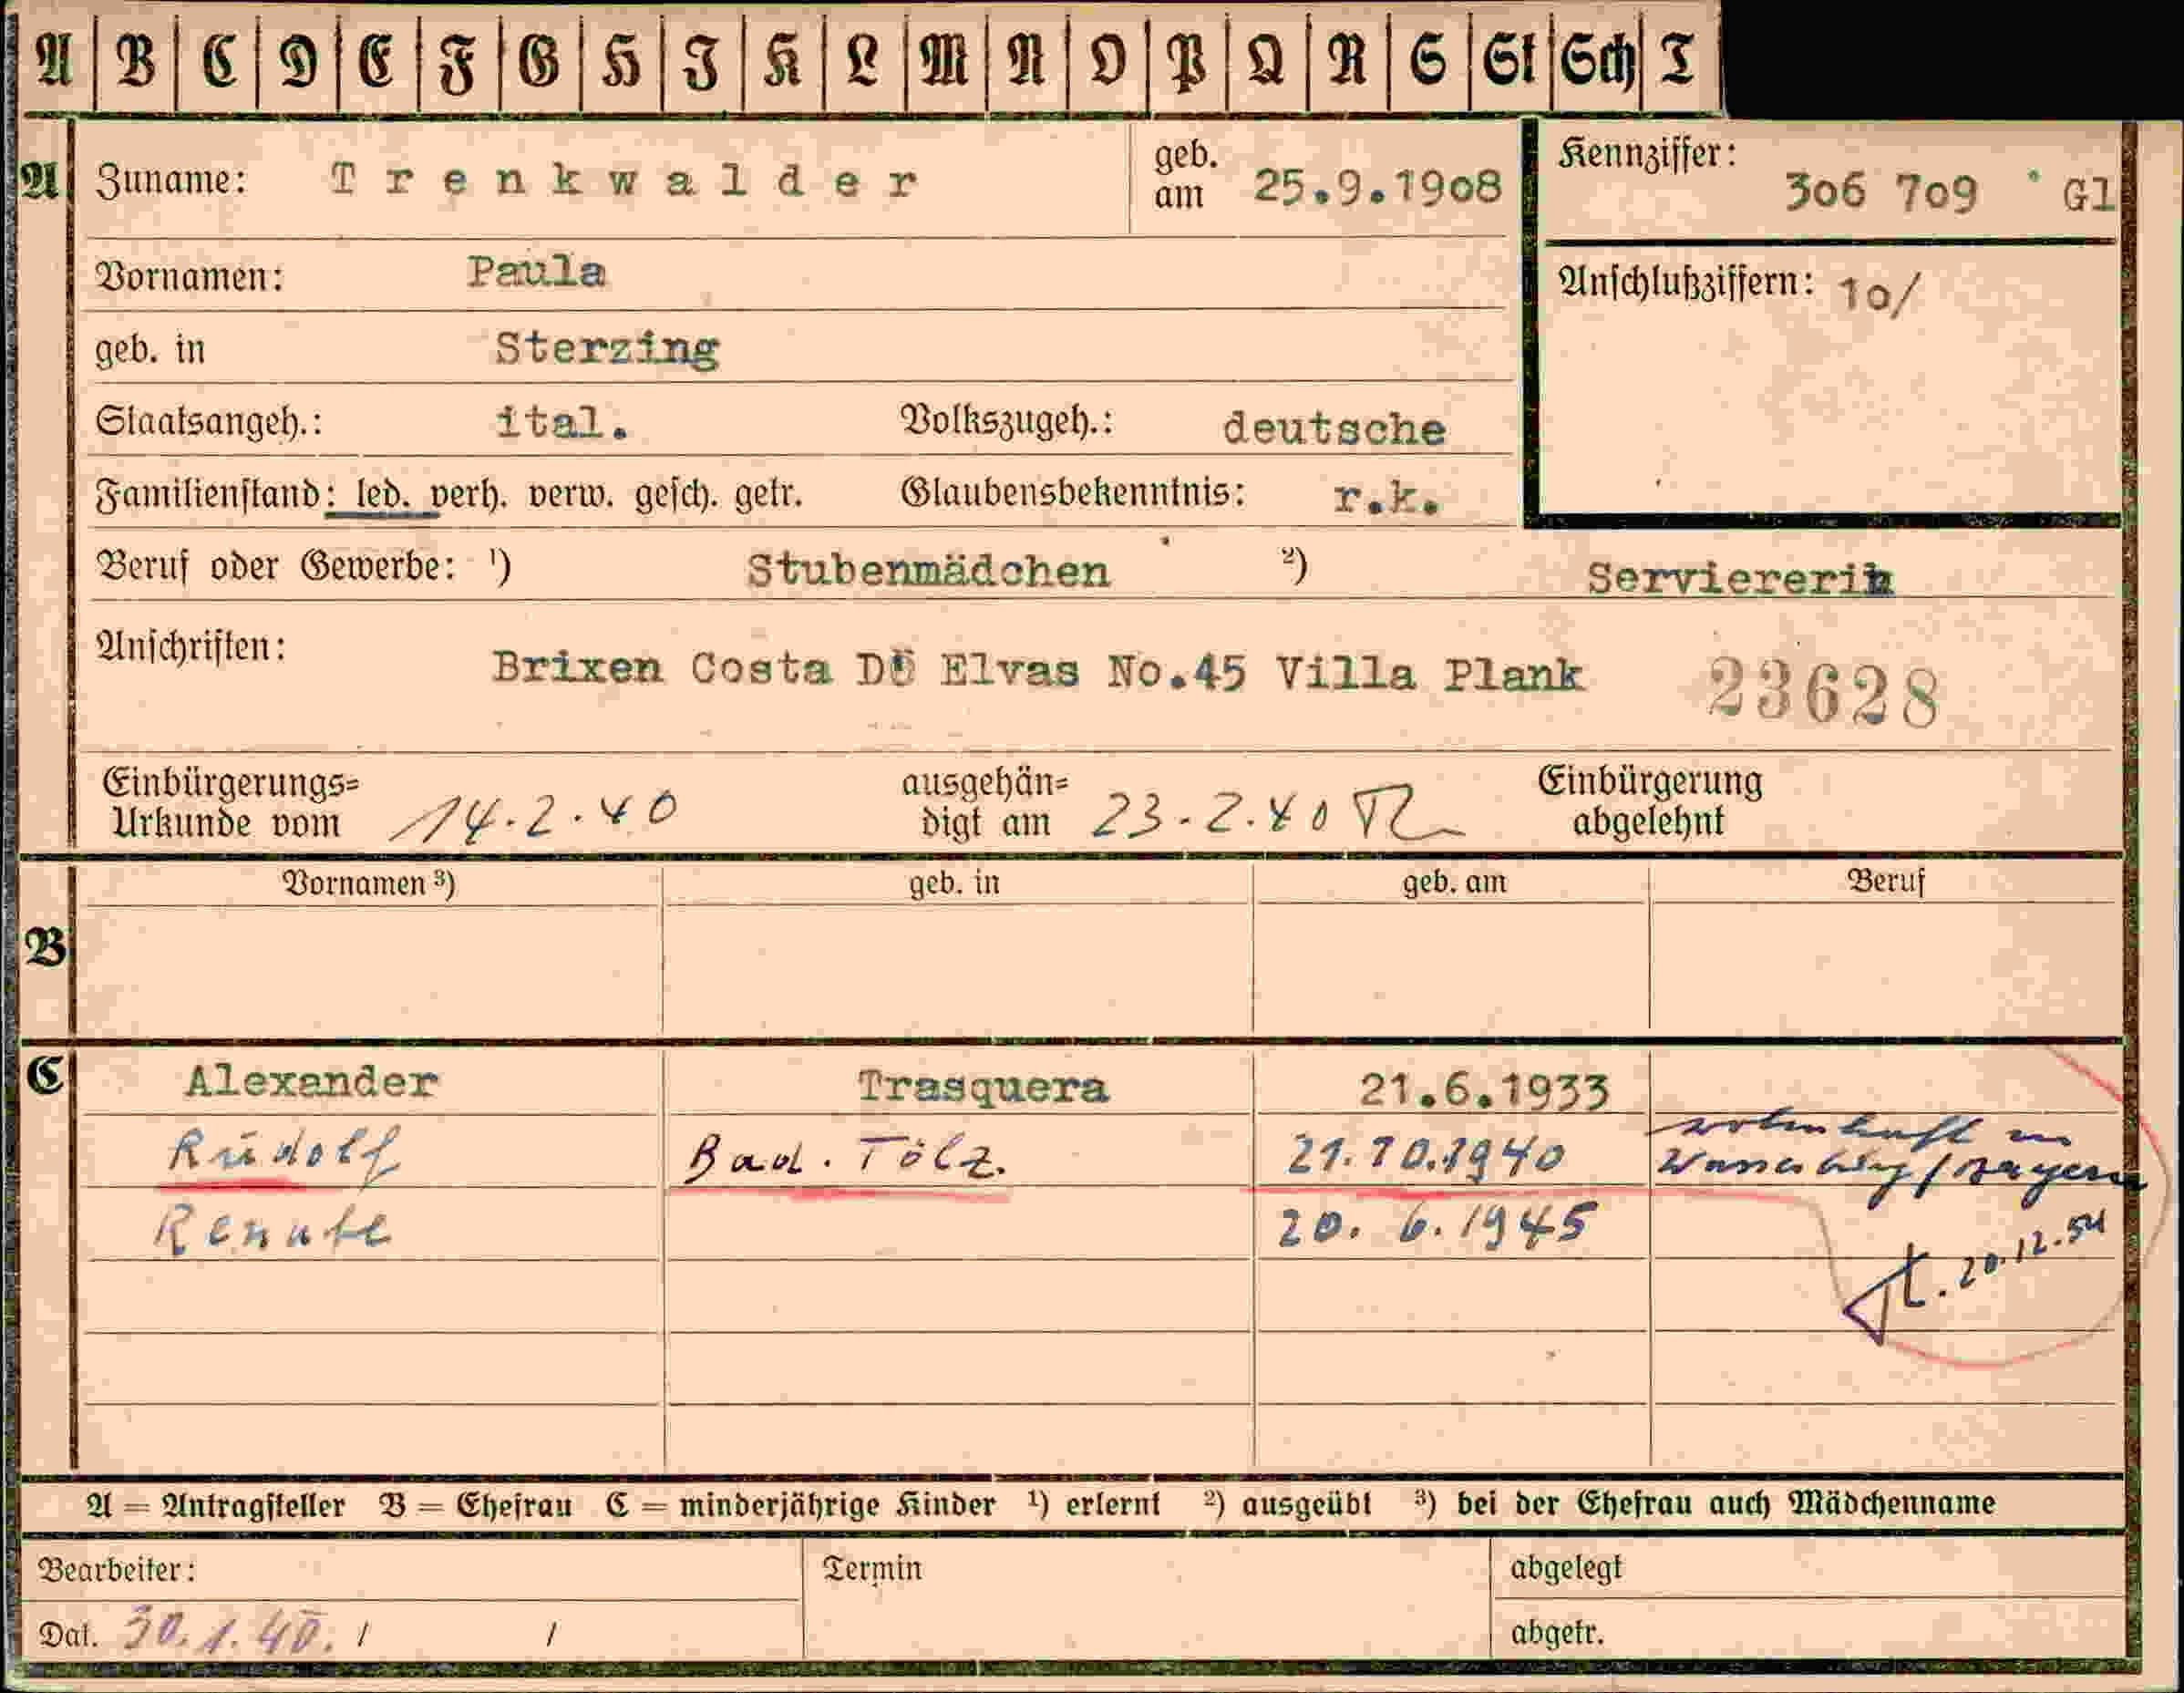 A B C D E F G H I K L M N O P Q R S St Sch T
A Zuname: Trenkwalder geb. am 25.9.1908 Kennziffer: 306 709 Gl
Vornamen: Paula Anschlußziffern: 10/
geb. in Sterzing
Staatsangeh.: ital. Volkszugeh.: deutsche
Familienstand: led. verh. verw. gesch. getr. Glaubensbekenntnis: r.k.
Beruf oder Gewerbe: ¹) Stubenmädchen ²) Serviererin
Anschriften: Brixen Costa D' Elvas No.45 Villa Plank 23628
Einbürgerungs= Urkunde vom 14.2.40 ausgehän= digt am 23.2.40 Einbürgerung abgelehnt
Vornamen ³) geb. in geb. am Beruf
B
C Alexander Trasquera 21.6.1933
Rudolf Bad. Tölz. 21.10.1940 wohnhaft in
Wasserburg/Bayern
Renate 20. 6. 1945
20.12.54
A = Antragsteller B = Ehefrau C = minderjährige Kinder ¹) erlernt ²) ausgeübt ³) bei der Ehefrau auch Mädchenname
Bearbeiter: Termin abgelegt
Dat. 30.1.40. / / abgetr.